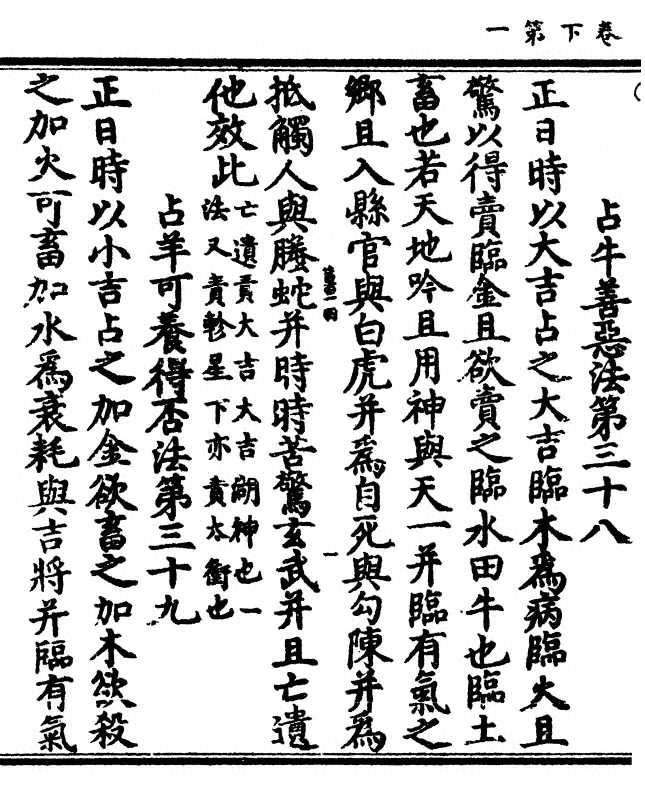 卷下第一
占牛善惡法第三十八
正日時以大吉占之大吉臨木為病臨火且
驚以得賣臨金且欲賣之臨水田牛也臨土
畜也若天地吟且用神與天一并臨有氣之
鄉且入縣官與白虎并為自死與勾陳并為
抵觸人與螣蛇并時時苦驚玄武并且亡遺
他效比
亡遺責大吉大吉神也一
法又責軫星下亦責太衝也
占羊可養得否法第三十九
正日時以小吉占之加金欲畜之加木欲殺
之加火可畜加水為衰耗與吉將并臨有氣